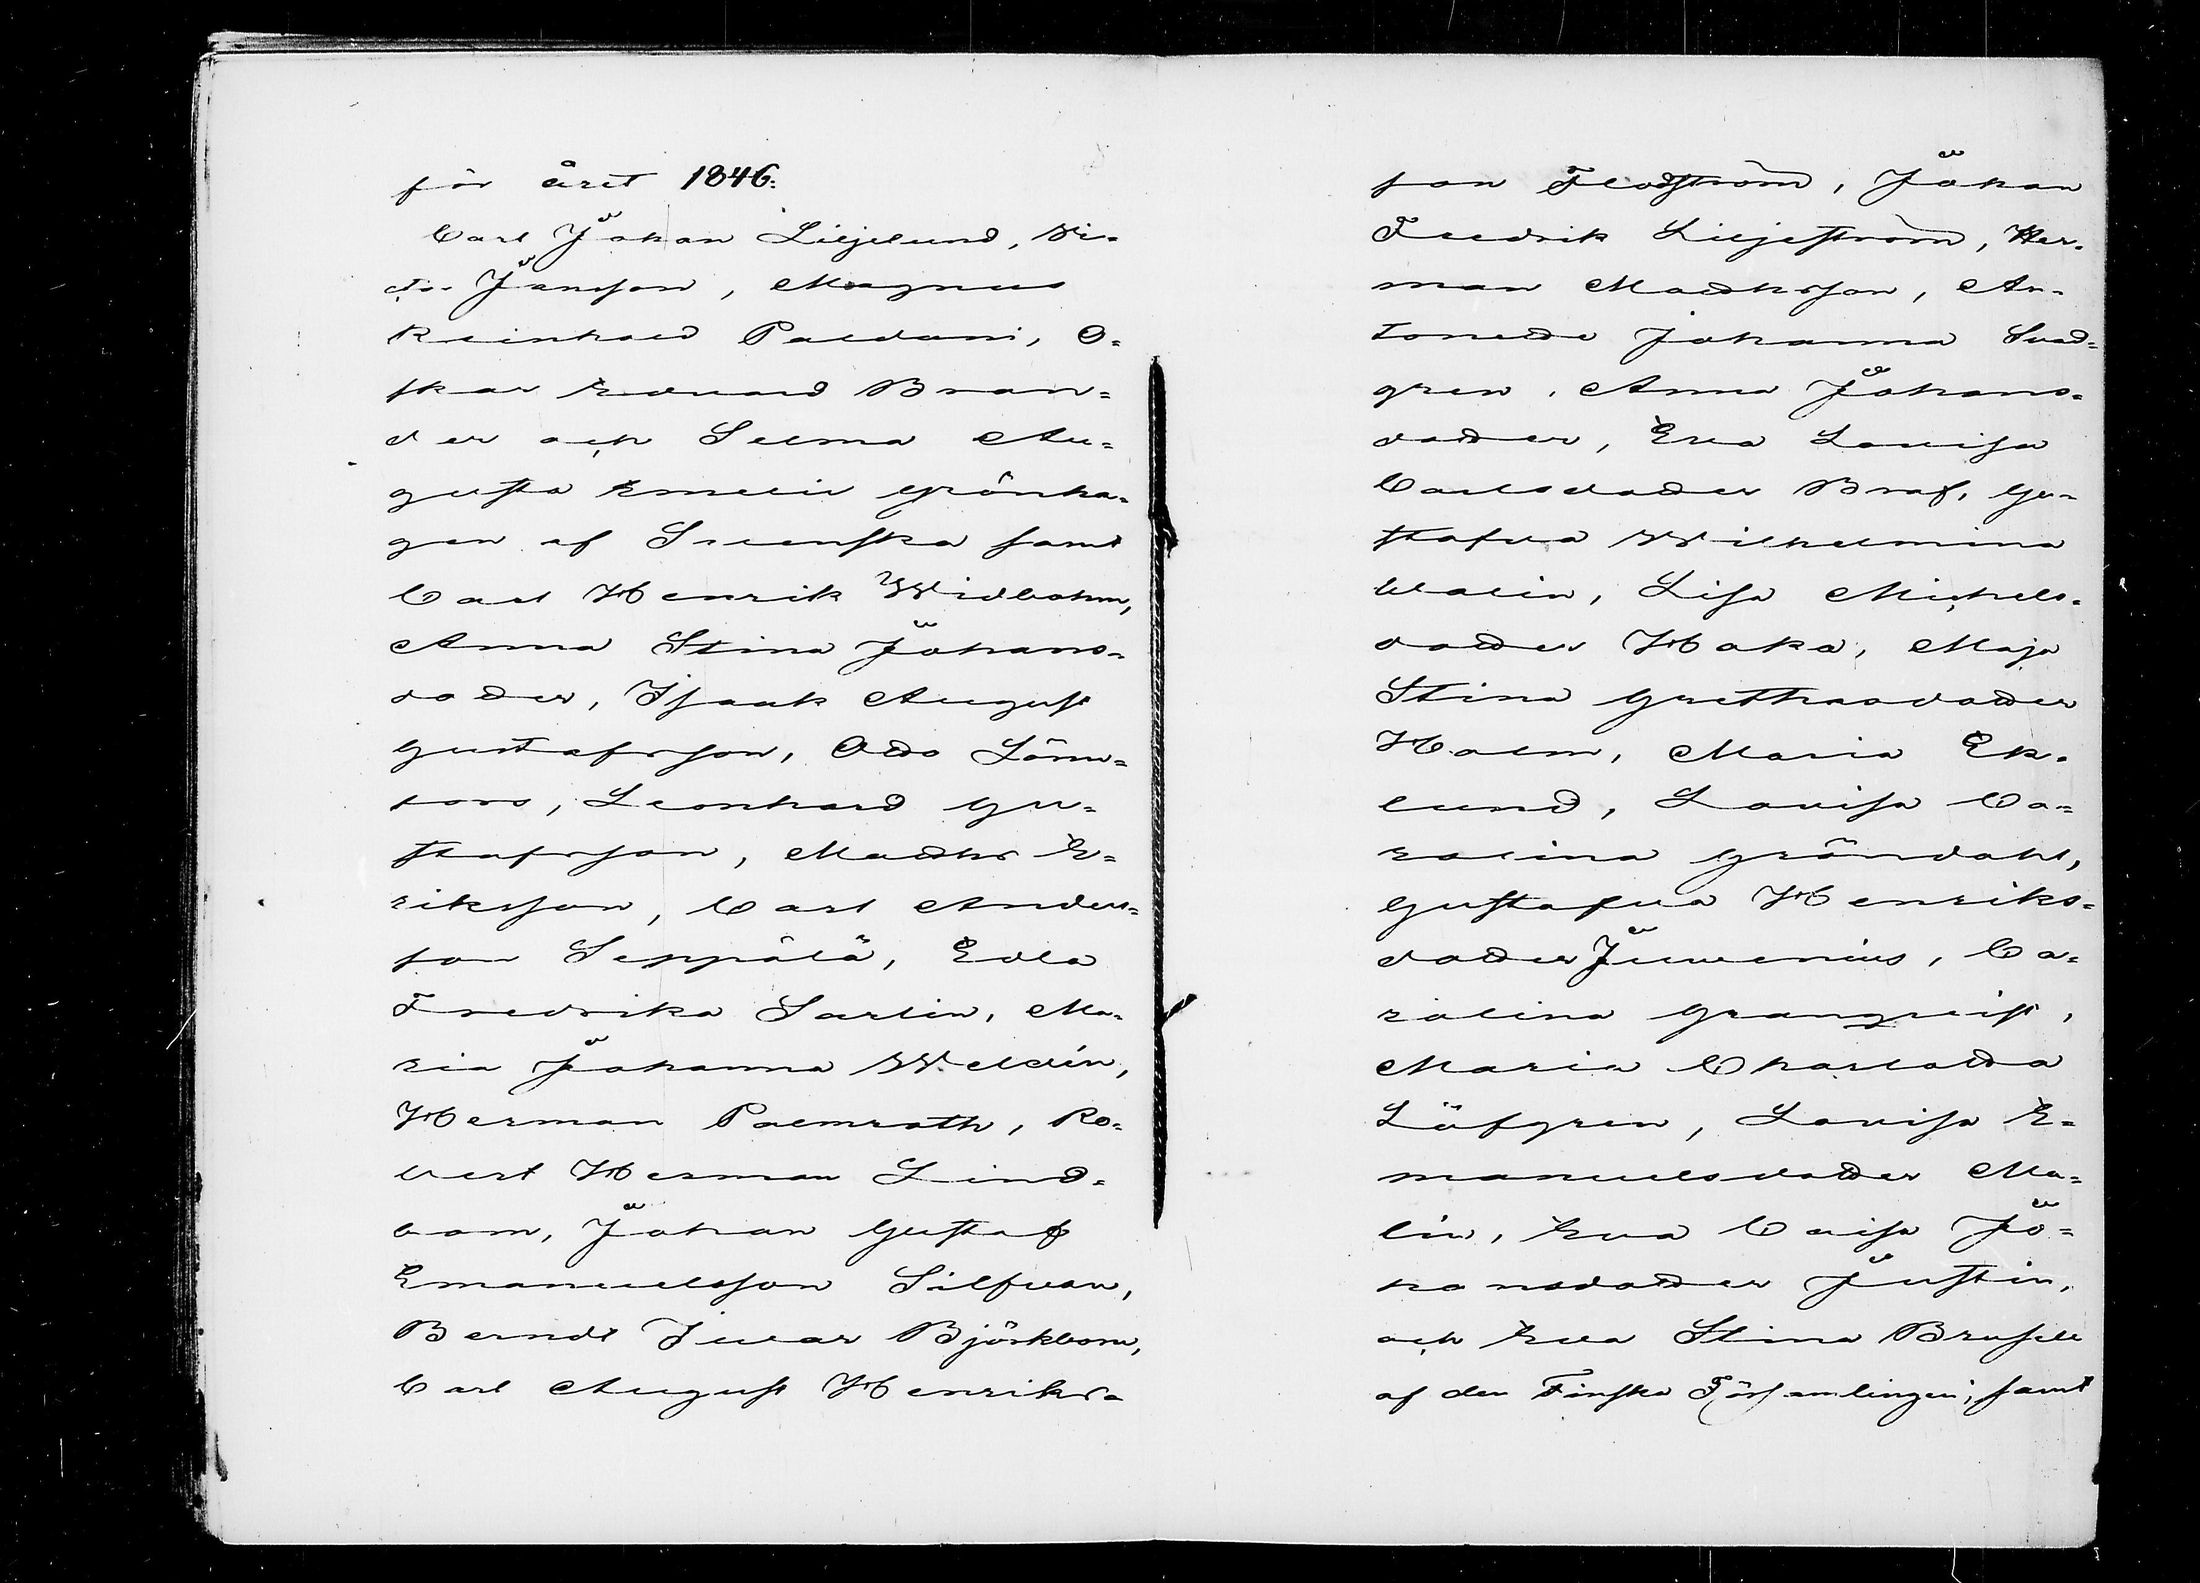 för året 1846:
Carl Johan Liljelund, Vi-
ctor Jansson, Magnus
Reinhold Paldani, O-
skar Edvard Bran-
der och Selma Au-
gusta Emelie Grönha-
gen af Svenska samt
Carl Henrik Widbohm,
Anna Stina Johans-
dotter, Isaak August
Gustafsson, Otto Lönn-
fors, Leonhard Gu-
stafsson, Matths E-
riksson, Carl Anders-
son Seppälä, Edla
Fredrika Sarlin, Ma-
ria Johanna Weldin,
Herman Palmroth, Ro-
bert Herman Lind-
bom, Johan Gustaf
Emanuelsson Silfvan,
Berndt Ivar Björkbom,
Carl August Henriks-
son Flodström, Johan
Fredrik Liljeström, Her-
man Mattsson, An-
tonette Johanna Svad-
gren, Anna Johans-
dotter, Eva Lovisa
Carlsdotter Braf, Gu-
stafva Wilhelmina
Walin, Lisa Michels-
dotter Haka, Maja
Stina Grethasdotter
Holm, Maria Ek-
lund, Lovisa Ca-
rolina Gröndahl,
Gustafva Henriks-
dotter Juvenius, Ca-
rolina Granqvist,
Maria Charlotta
Löfgren, Lovisa E-
manuelsdotter Ma-
lin, Eva Caisa Jo-
hansdotter Justin,
och Eva Stina Brusell
af den Finska Församlingen; samt